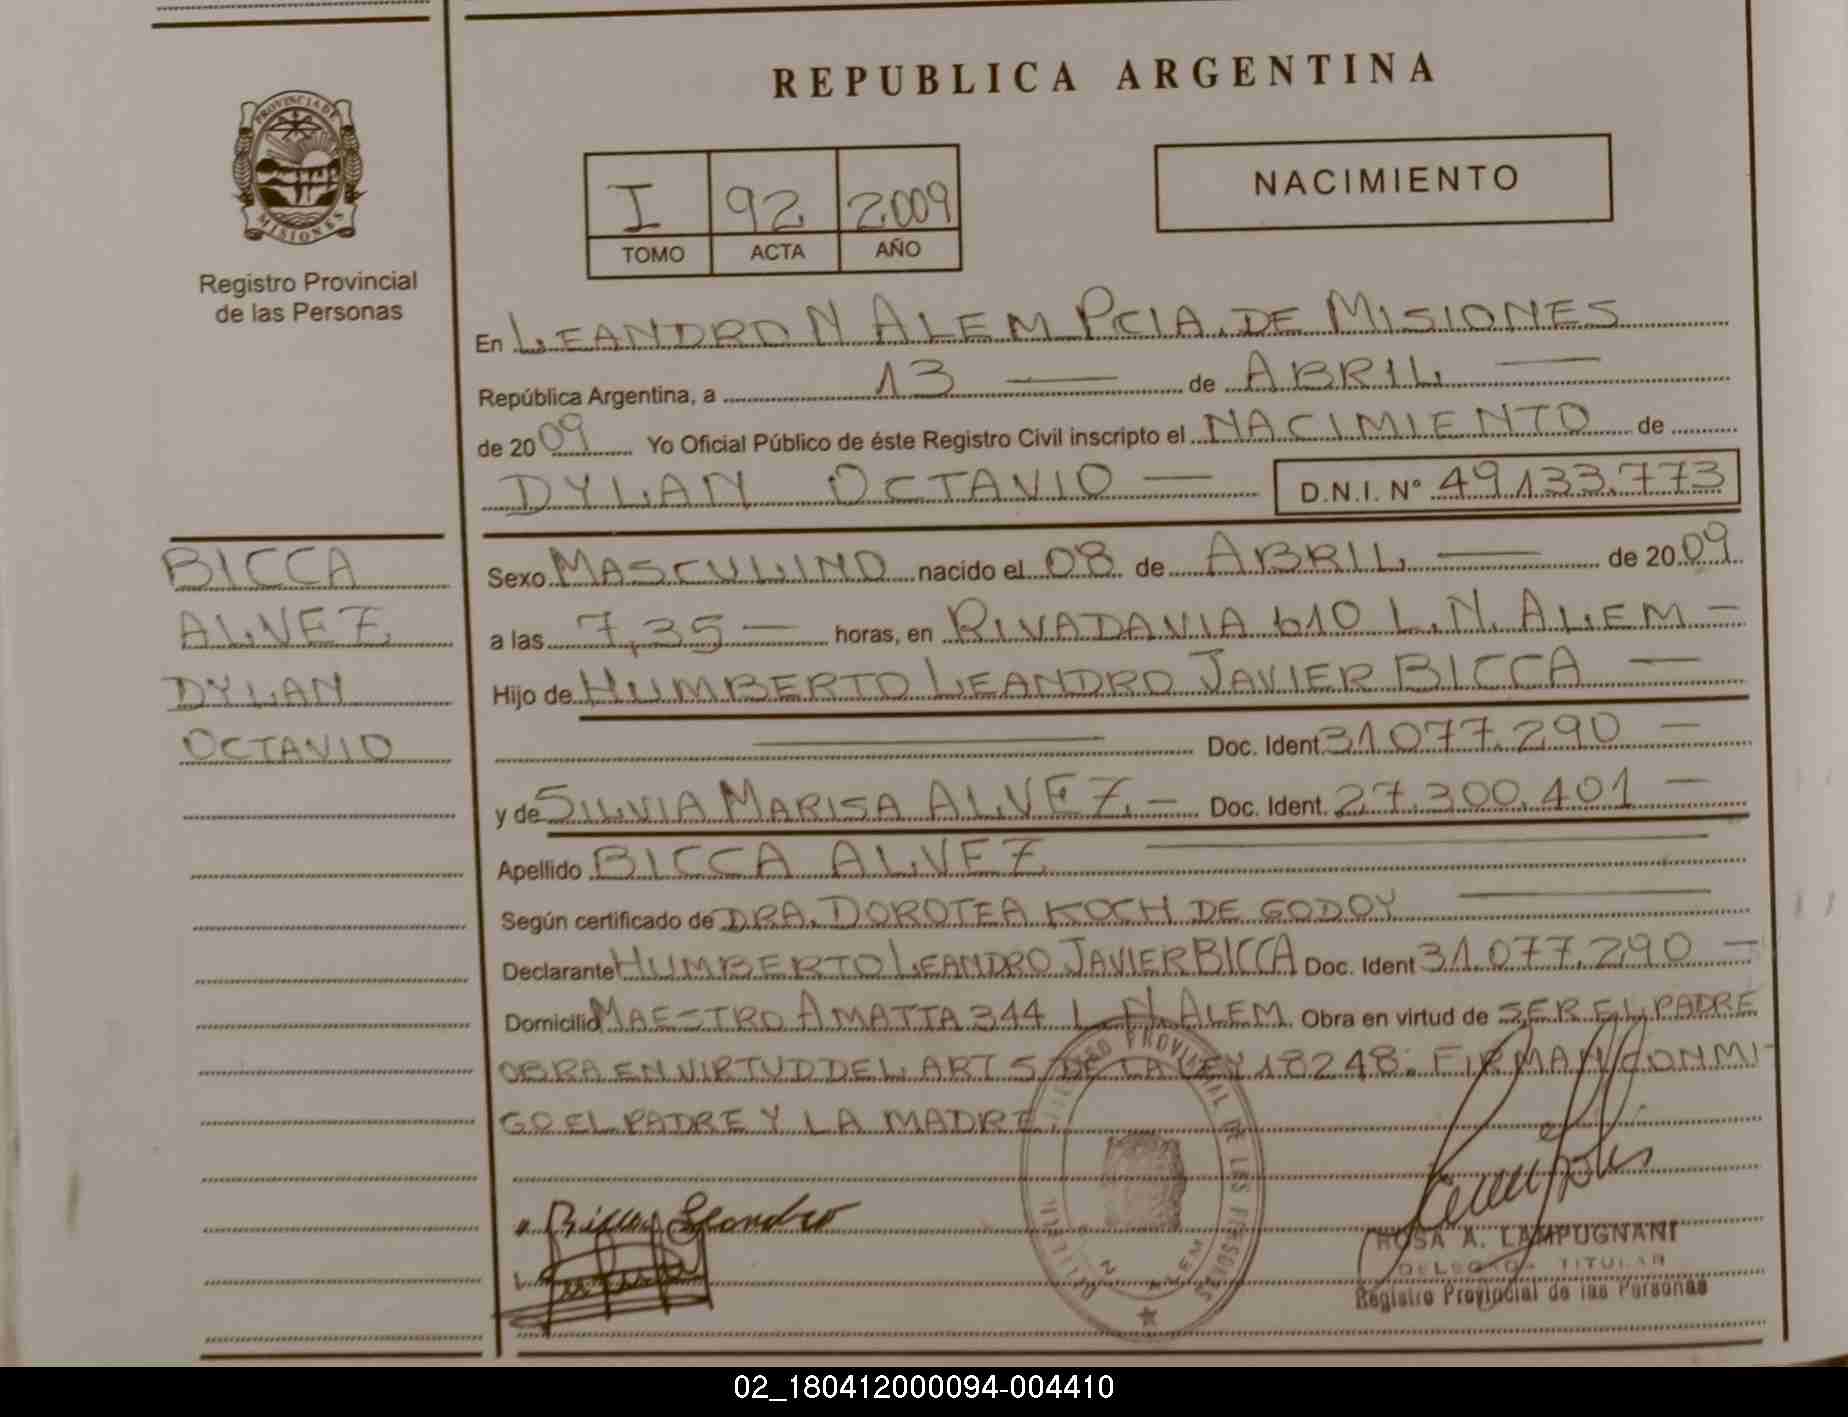 REPUBLICA ARGENTINA
PROVINCIA DE
MISIONES
Registro Provincial
de las Personas
I 92 2009
TOMO ACTA AÑO
NACIMIENTO
En LEANDRO N ALEM PCIA. DE MISIONES
República Argentina, a 13 — de ABRIL —
de 2009 Yo Oficial Público de éste Registro Civil inscripto el NACIMIENTO de
DYLAN OCTAVIO — D.N.I. Nº 49.133.773
BICCA
ALVEZ
DYLAN
OCTAVIO
Sexo MASCULINO nacido el 08 de ABRIL — de 2009
a las 7,35 — horas, en RIVADAVIA 610 L.N. ALEM —
Hijo de HUMBERTO LEANDRO JAVIER BICCA —
— Doc. Ident. 31.077.290 —
y de SILVIA MARISA ALVEZ — Doc. Ident. 27.300.401 —
Apellido BICCA ALVEZ —
Según certificado de DRA. DOROTEA KOCH DE GODOY —
Declarante HUMBERTO LEANDRO JAVIER BICCA Doc. Ident 31.077.290 —
Domicilio MAESTRO AMATTA 344 L.N. ALEM. Obra en virtud de SER EL PADRE
OBRA EN VIRTUD DEL ART 5 DE LA LEY 18248. FIRMAN CONMI-
GO EL PADRE Y LA MADRE.
Leandro
ROSA A. LAMPUGNANI
DELEGADA TITULAR
Registro Provincial de las Personas
02_180412000094-004410